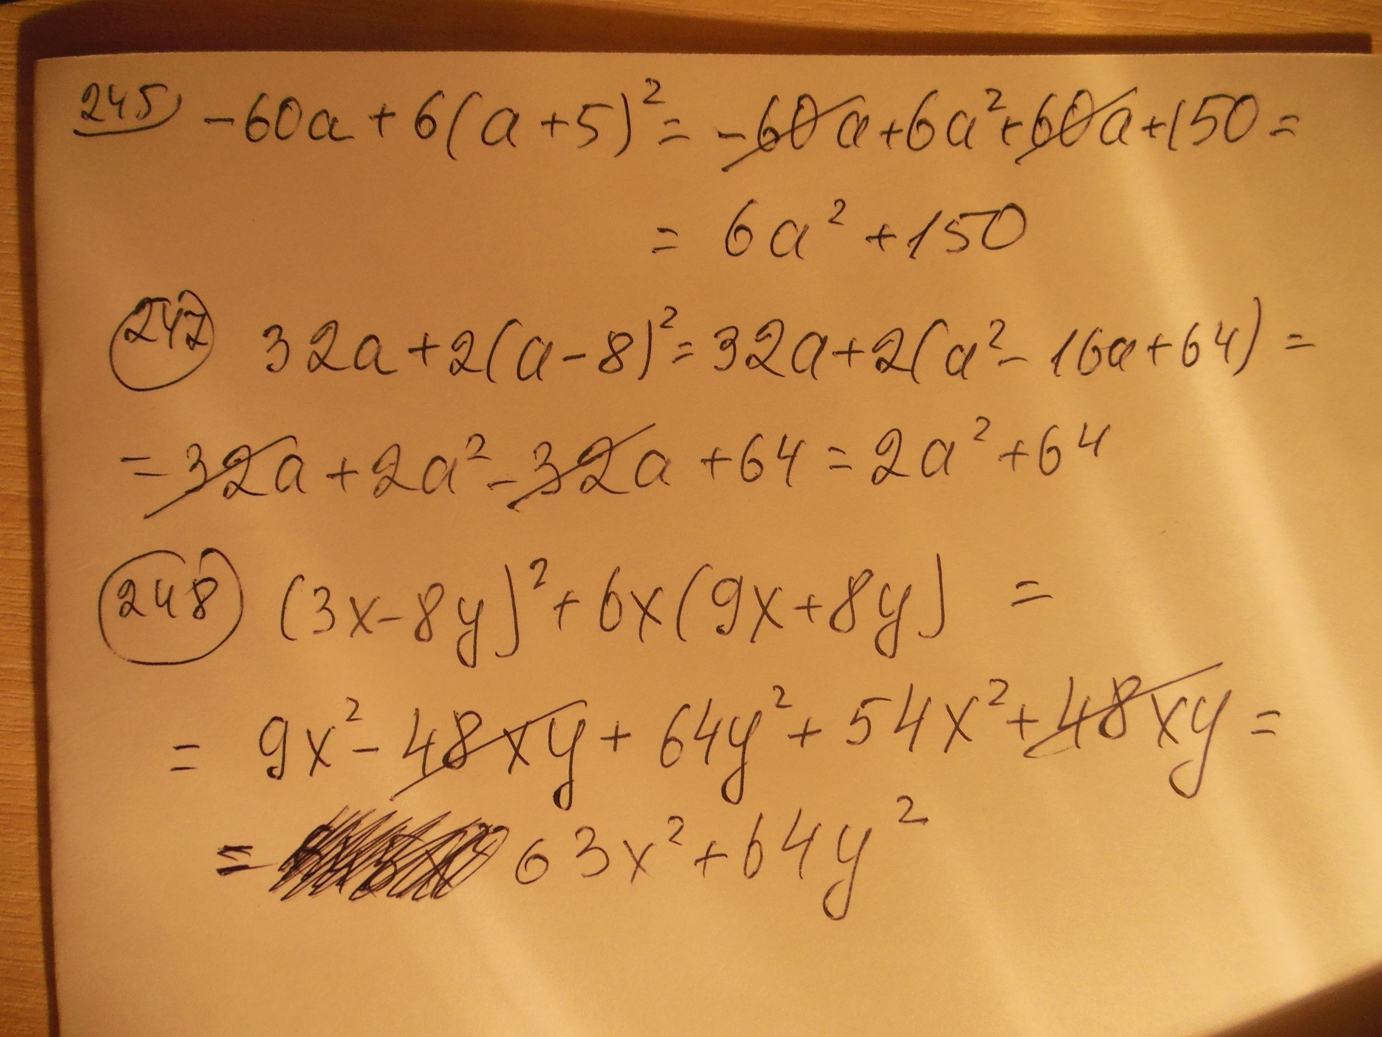 245) -60a + 6(a+5)² = -60a + 6a² + 60a + 150 =
= 6a² + 150
247 32a + 2(a-8)² = 32a + 2(a² - 16a + 64) =
= 32a + 2a² - 32a + 64 = 2a² + 64
248 (3x-8y)² + 6x(9x+8y) =
= 9x² - 48xy + 64y² + 54x² + 48xy =
= 63x² + 64y²